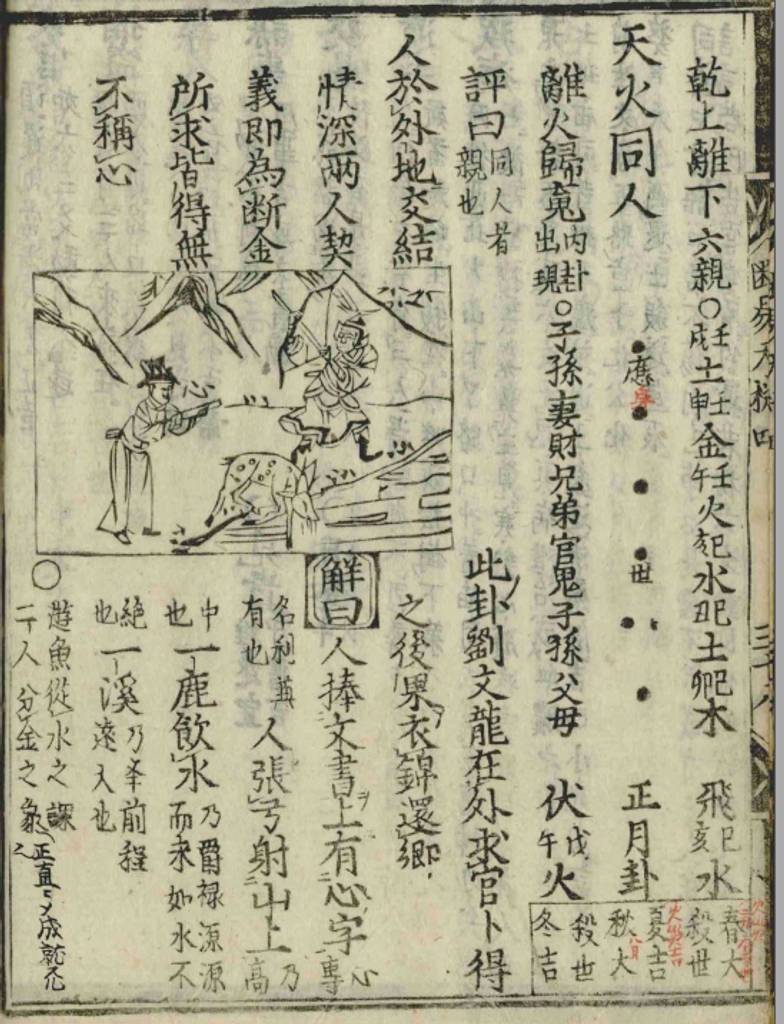 乾上離下六親○壬戌土壬申金壬午火己亥水己丑土己卯木 飛己亥水
天火同人 應 世 正月卦
離火歸䰟內卦出現○子孫妻財兄弟官鬼子孫父母 伏戊午火
春大殺世
夏吉
秋大殺世
冬吉
評曰同人者親也
此卦劉文龍在外求官卜得
之後果衣錦還鄉
人於外地交結
情深兩人契
義即為断金
所求皆得無
不稱心
心
解曰人捧文書上有心字專心
名利有也 人張弓射山上乃高
中也一鹿飲水乃爵禄源源而来如水不
絕也一溪乃前程遠大也
○
遊魚從水之課
二人分金之象
正直 成就